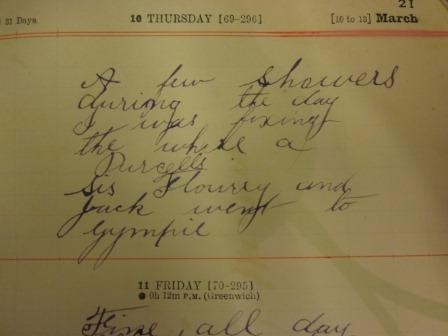 21
31 Days.
10 THURSDAY [69-296]
[10 to 13] March
A few showers
during the day
I was fixing
the while a
Purcells
Sis Flourry and
Jack went to
Gympie
11 FRIDAY [70-295]
● 0h 12m P.M. (Greenwich)
Fine all day